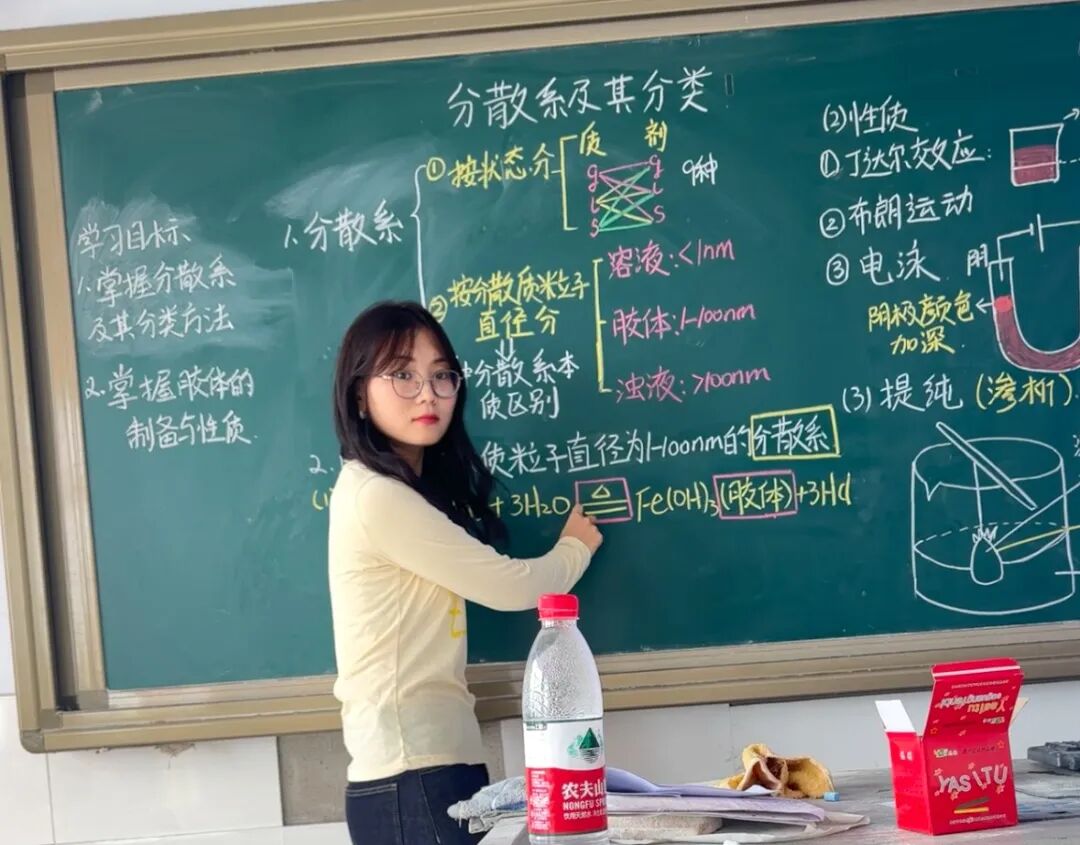 分散系及其分类
学习目标
1.掌握分散系
及其分类方法
2.掌握胶体的
制备与性质.
1.分散系
①按状态分
质 剂
g g
l l
s s
9种
②按分散质粒子
直径分
溶液:<1nm
胶体:1-100nm
浊液:>100nm
分散系本
质区别
2.
质粒子直径为1-100nm的分散系
(1)
+3H₂O △ Fe(OH)₃(胶体)+3HCl
(2)性质
①丁达尔效应:
②布朗运动
③电泳
阴
阴极颜色
加深.
(3)提纯(渗析).
农夫山
NONGFU SP
饮用天然水
YASITU